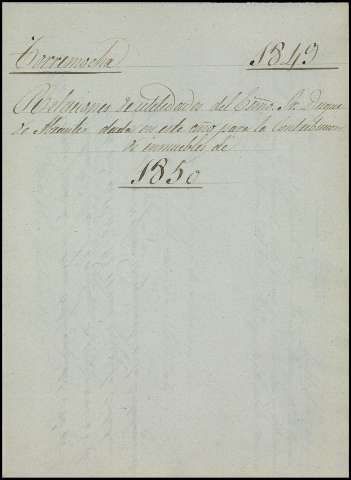 Torremocha 1849
Relaciones de utilidades del Exmo. Sr. Duque
de Abrantes dadas en este año para la Contribucion
de inmuebles de
1850